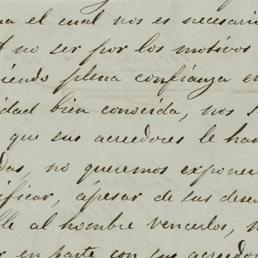 a el cual nos es necesari
no ser por los motivos
iendo plena confianza en
idad bien conocida, nos s
que sus acreedores le han
das, no queremos exponer
ificar, apesar de sus dese
lle al hombre vencerlos, n
r en parte con sus acreedo